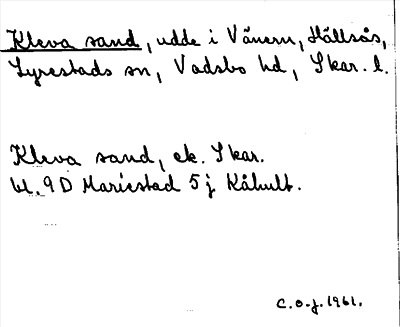 Kleva sand, udde i Vänern, Hällsås,
Lyrestads sn, Vadsbo hd, Skar. l.
Kleva sand, ek. Skar.
bl. 9D Mariestad 5 j Kåhult.
C.O-j. 1961.